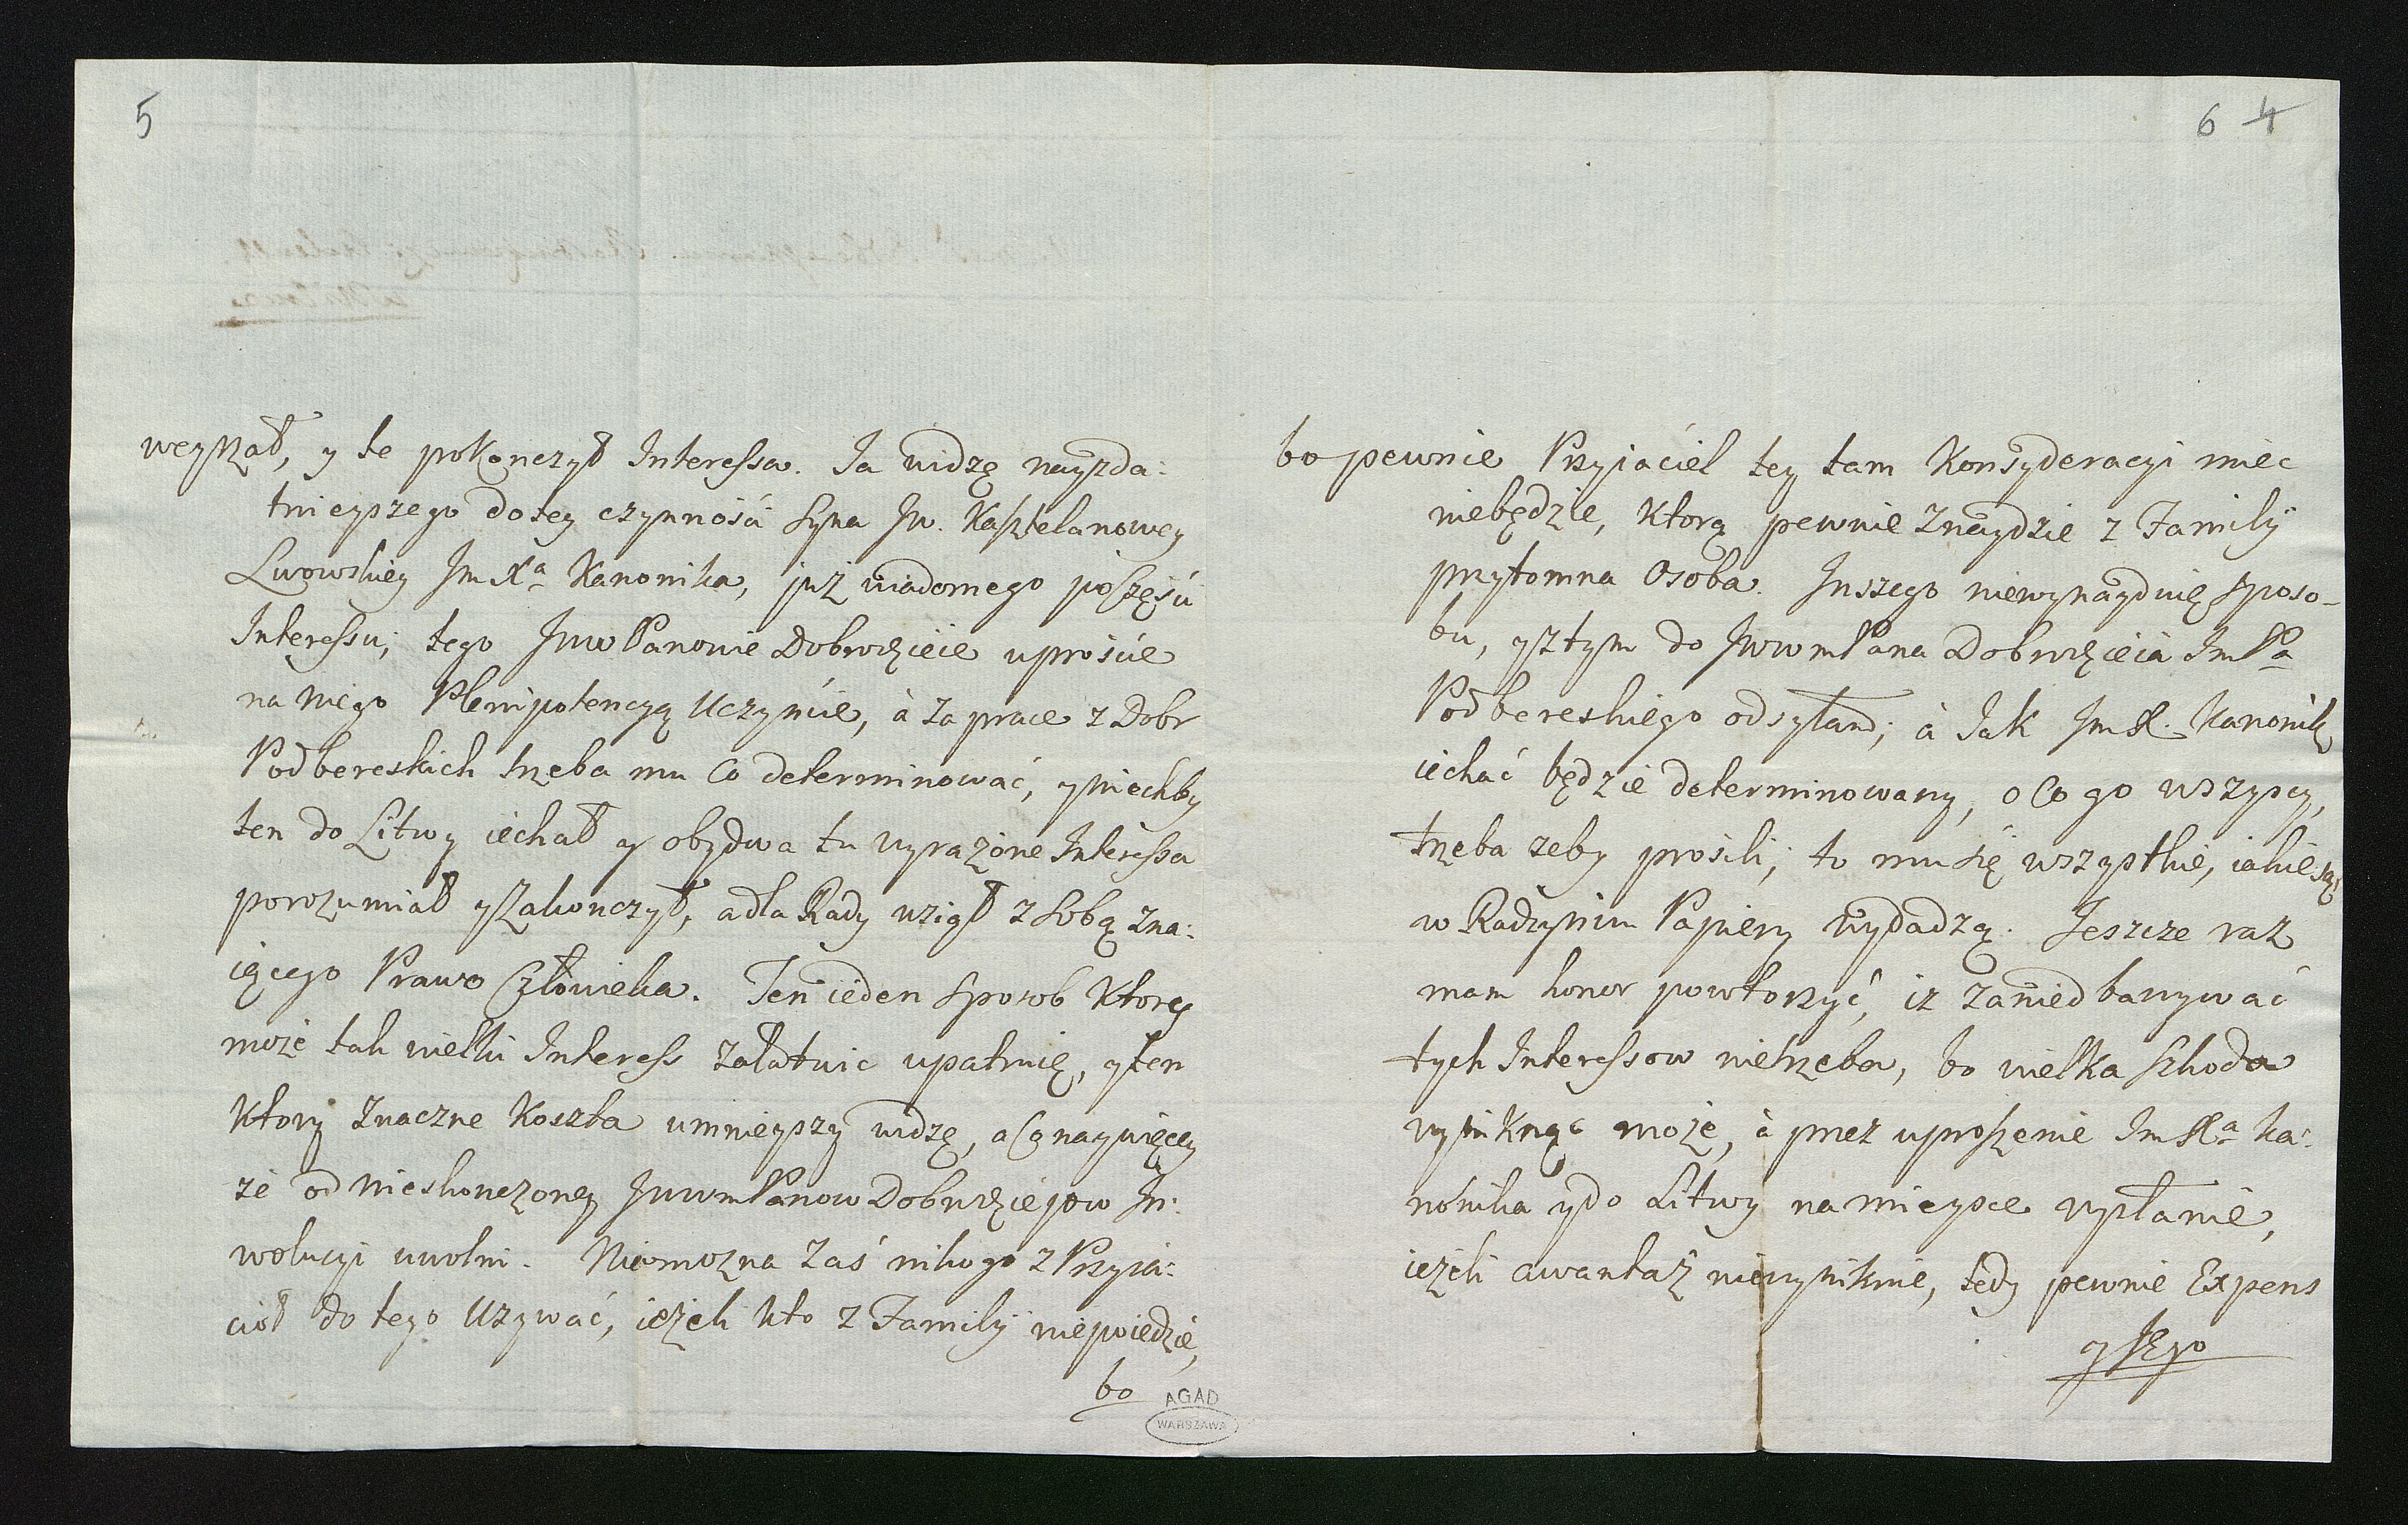 5
weyrzał, y te pokonczył Interessa. Ja widzę nayzda:
tnieyszego do tey czynności Syna Jw. Kasztelanowey
Lwowskiey Jm Xa Kanonika, już wiadomego po części
Interessu; tego JWWPanowie Dobrodzieie uproście
na niego Plenipotencyą Uczyńcie, à za prace z Dobr
Podbereskich trzeba mu Co determinować, y niechby
ten do Litwy iechał y obydwa tu wyrażone Interessa
porozumiał y zakonczył, a dla Rady wziął z Sobą zna:
iącego Prawo Człowieka. Ten ieden Sposob ktory
może tak wielki Interess załatwic upatruię, y ten
ktory znaczne Koszta umnieyszy widzę, a Co naywięcey
że od nieskonczoney JWWmPanow Dobrodzieiow In:
wolucyi uwolni. Niemozna zaś nikogo z Przyia:
cioł do tego Uzywać, ieżeli kto z Familij niepoiedzie,
bo
AGAD
WARSZAWA
6 4
bo pewnie Przyiaciel tey tam Konsyderacyi miec
niebędzie, ktorą pewnie znaydzie z Familij
przytomna Osoba. Inszego niewynayduię sposo-
bu, y z tym do JWWmPana Dobrodzieia ImPa
Podbereskiego odsyłam; à Jak Jm X. Kanonik
iechać będzie determinowany, o Co go wszyscy,
trzeba zeby prosili; to mu się wszystkie, iakie są
w Radzyniu Papiery wydadzą. Jeszcze raz
mam honor powtorzyć, iz zaniedbanywać
tych Interessow nietrzeba, bo wielka Szkoda
wyniknąc może, à przez uproszenie Im Xa Ka:
nonika y do Litwy na mieysce wysłanie,
ieżeli awantaż niewyniknie, tedy pewnie Expens